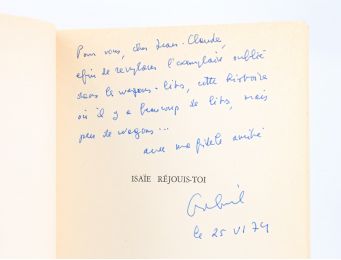 Pour vous, cher Jean-Claude,
afin de remplacer l'exemplaire oublié
dans les wagons-lits, cette histoire
où il y a beaucoup de lits, mais
peu de wagons...
avec ma fidèle amitié
ISAÏE RÉJOUIS-TOI
Gabriel
le 25 VI 74